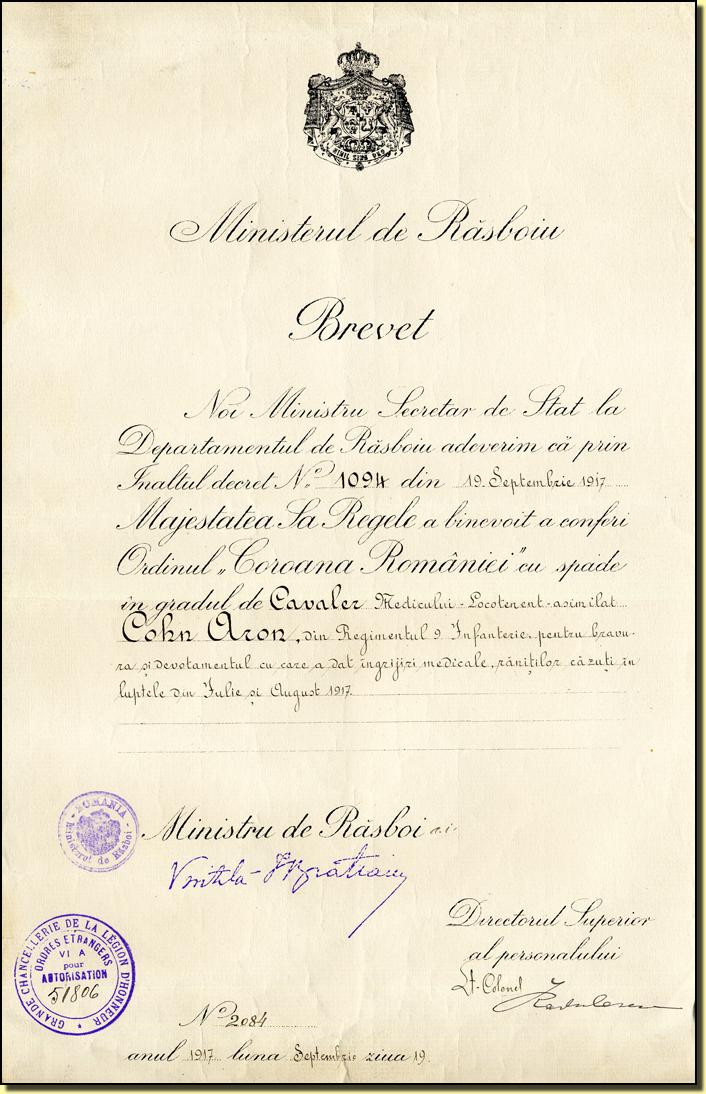 NIHIL SINE DEO
Ministerul de Răsboiu
Brevet
Noi Ministru Secretar de Stat la
Departamentul de Răsboiu adeverim că prin
Inaltul decret No 1094 din 19. Septembrie 1917
Majestatea Sa Regele a binevoit a conferi
Ordinul „Coroana României” cu spade
în gradul de Cavaler Medicului-Locotenent-asimilat
Cohn Aron, din Regimentul 9 Infanterie, pentru bravu-
ra și devotamentul cu care a dat îngrijiri medicale, răniților căzuți în
luptele din Iulie și August 1917.
ROMANIA
Ministerul de Răsboi
Ministru de Răsboi a.i.
Vintila Brătianu
Directorul Superior
al personalului
Lt. Colonel
Radulescu
GRANDE CHANCELLERIE DE LA LÉGION D'HONNEUR
ORDRES ÉTRANGERS
VI A
pour
AUTORISATION
51806
No 2084
anul 1917 luna Septembrie ziua 19.